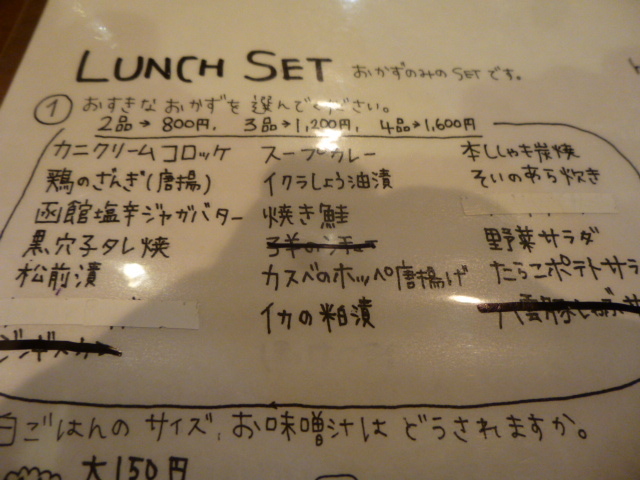 LUNCH SET おかずのみのSETです。
① おすきなおかずを選んでください。
2品→800円, 3品→1,200円, 4品→1,600円
カニクリームコロッケ
鶏のざんぎ(唐揚)
函館塩辛ジャガバター
黒穴子タレ焼
松前漬
ジンギスカン
スープカレー
イクラしょう油漬
焼き鮭
カスベのホッペ唐揚げ
イカの粕漬
本ししゃも炭焼
そいのあら炊き
野菜サラダ
たらこポテトサラ
白ごはんのサイズ, お味噌汁はどうされますか。
大150円